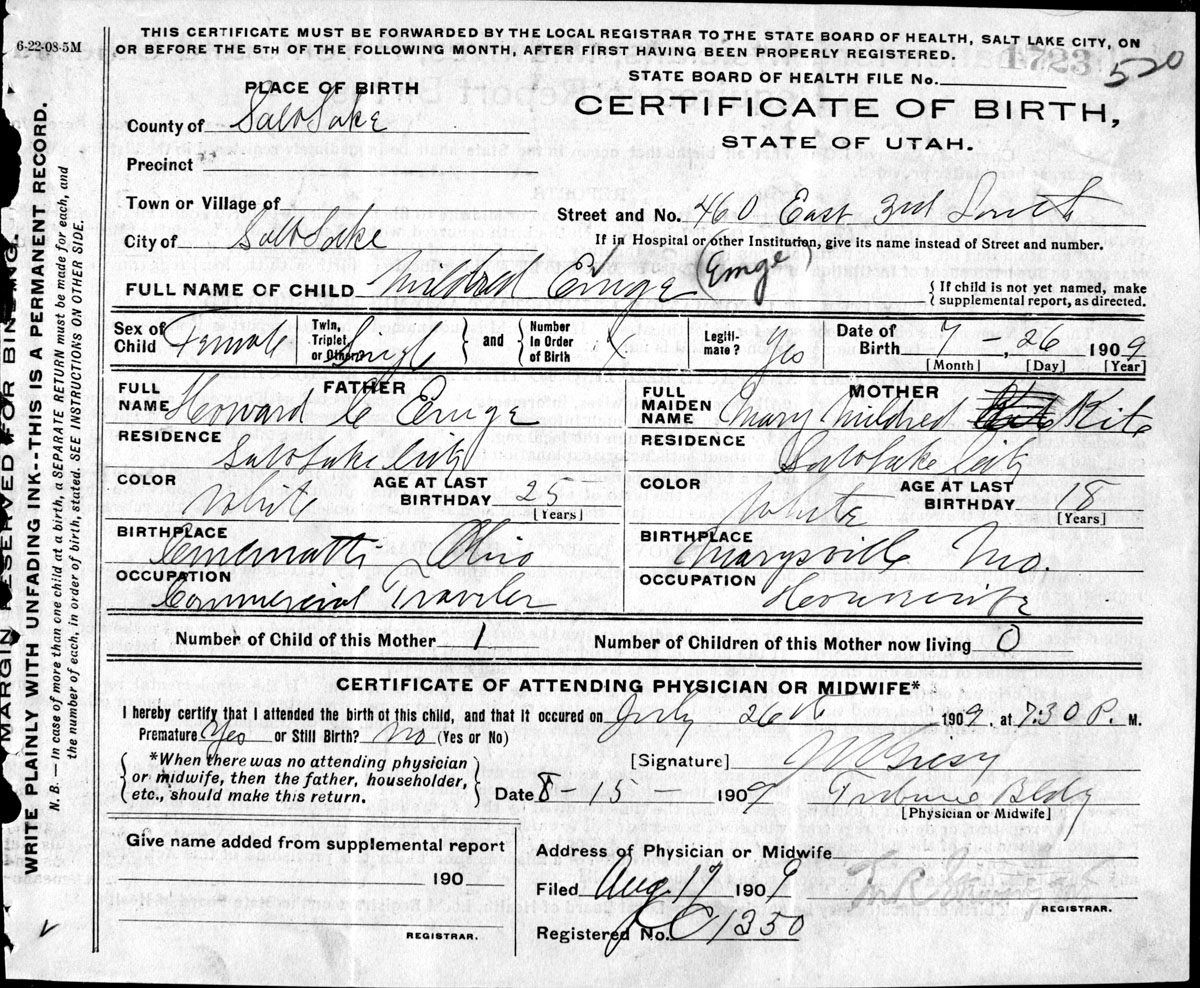 6-22-08-5M
THIS CERTIFICATE MUST BE FORWARDED BY THE LOCAL REGISTRAR TO THE STATE BOARD OF HEALTH, SALT LAKE CITY, ON
OR BEFORE THE 5TH OF THE FOLLOWING MONTH, AFTER FIRST HAVING BEEN PROPERLY REGISTERED.
STATE BOARD OF HEALTH FILE No. 520
PLACE OF BIRTH
CERTIFICATE OF BIRTH,
STATE OF UTAH.
County of Salt Lake
Precinct
Town or Village of
Street and No. 460 East 3rd South
City of Salt Lake
If in Hospital or other Institution, give its name instead of Street and number.
FULL NAME OF CHILD Mildred Emge (Emge)
{ If child is not yet named, make supplemental report, as directed.
Sex of Child Female Twin, Triplet, or Other Single } and { Number in Order of Birth Legiti-mate? Yes Date of Birth 7 - 26 1909
[Month] [Day] [Year]
FATHER
FULL NAME Howard C Emge
RESIDENCE Salt Lake City
COLOR White AGE AT LAST BIRTHDAY 25 [Years]
BIRTHPLACE Cincinnatti Ohio
OCCUPATION Commercial Traveler
MOTHER
FULL MAIDEN NAME Mary Mildred Kite
RESIDENCE Salt Lake City
COLOR White AGE AT LAST BIRTHDAY 18 [Years]
BIRTHPLACE Marysville Mo.
OCCUPATION Housewife
Number of Child of this Mother 1 Number of Children of this Mother now living 0
CERTIFICATE OF ATTENDING PHYSICIAN OR MIDWIFE*
I hereby certify that I attended the birth of this child, and that it occured on July 26th 1909, at 7:30 P. M.
Premature Yes or Still Birth? No (Yes or No)
{ *When there was no attending physician or midwife, then the father, householder, etc., should make this return. }
[Signature]
Date 8-15- 1909 Tribune Bldg
[Physician or Midwife]
Give name added from supplemental report
190
REGISTRAR.
Address of Physician or Midwife
Filed Aug. 17 1909
REGISTRAR.
Registered No. 1350
MARGIN RESERVED FOR BINDING.
WRITE PLAINLY WITH UNFADING INK--THIS IS A PERMANENT RECORD.
N. B. — In case of more than one child at a birth, a SEPARATE RETURN must be made for each, and
the number of each, in order of birth, stated. SEE INSTRUCTIONS ON OTHER SIDE.